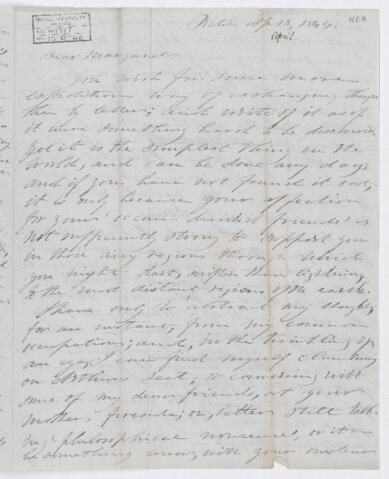 McGILL UNIVERSITY
ACC. NO. 1377
40A
Ap. 13, 1844.
April
Dear Margaret
You wish for some more
expeditious way of exchanging thoughts
than by letter; and write of it as if
it were something hard to be discovered
yet it is the simplest thing in the
world, and can be done any day;
and if you have not found it out,
it is only because your affection
for your ocean divided friends is
not sufficiently strong to support you
in those airy regions through which
you might dart, swifter than lightning
to the most distant regions of the earth.
I have only to abstract my thoughts
for an instant, from my common
occupations; and, in the twinkling of
an eye, I can find myself clambering
on Arthurs Seat, or conversing with
some of my dear friends, at your
mothers fireside; or, better still talk-
ing philosophical nonsense, or it may
be something wiser, with your